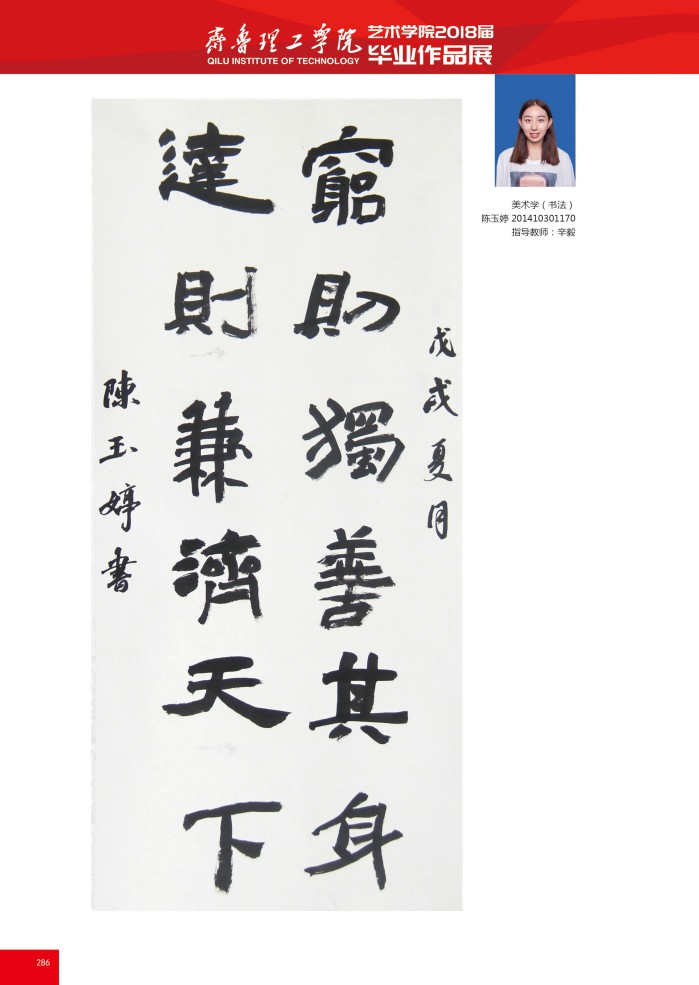 齊魯理工學院
QILU INSTITUTE OF TECHNOLOGY
艺术学院2018届
毕业作品展
美术学（书法）
陈玉婷 201410301170
指导教师：辛毅
戊戌夏月
窮則獨善其身
達則兼濟天下
陳玉婷書
286